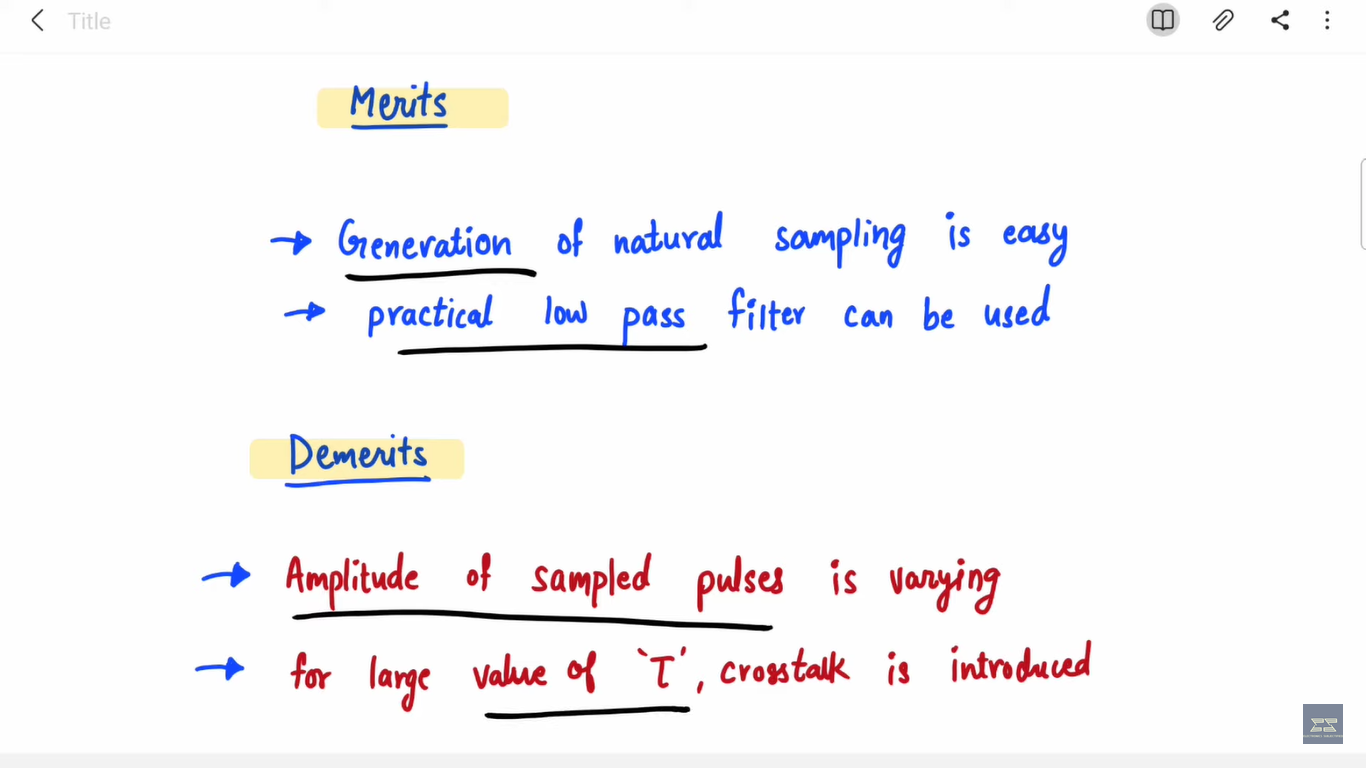 Title
Merits
→ Generation of natural sampling is easy
→ practical low pass filter can be used
Demerits
→ Amplitude of sampled pulses is varying
→ for large value of 'T', crosstalk is introduced